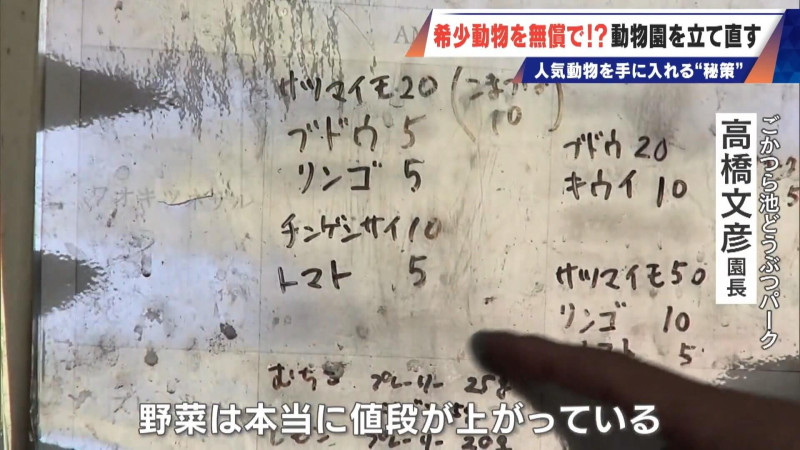 希少動物を無償で!?動物園を立て直す
人気動物を手に入れる“秘策”
ごかつら池どうぶつパーク
高橋文彦 園長
AN
サツマイモ20
10
ブドウ 5
リンゴ 5
チンゲンサイ10
トマト 5
ワオキツネザル
ブドウ 20
キウイ 10
サツマイモ50
リンゴ 10
トマト 5
プレーリー 25g
プレーリー 20g
野菜は本当に値段が上がっている